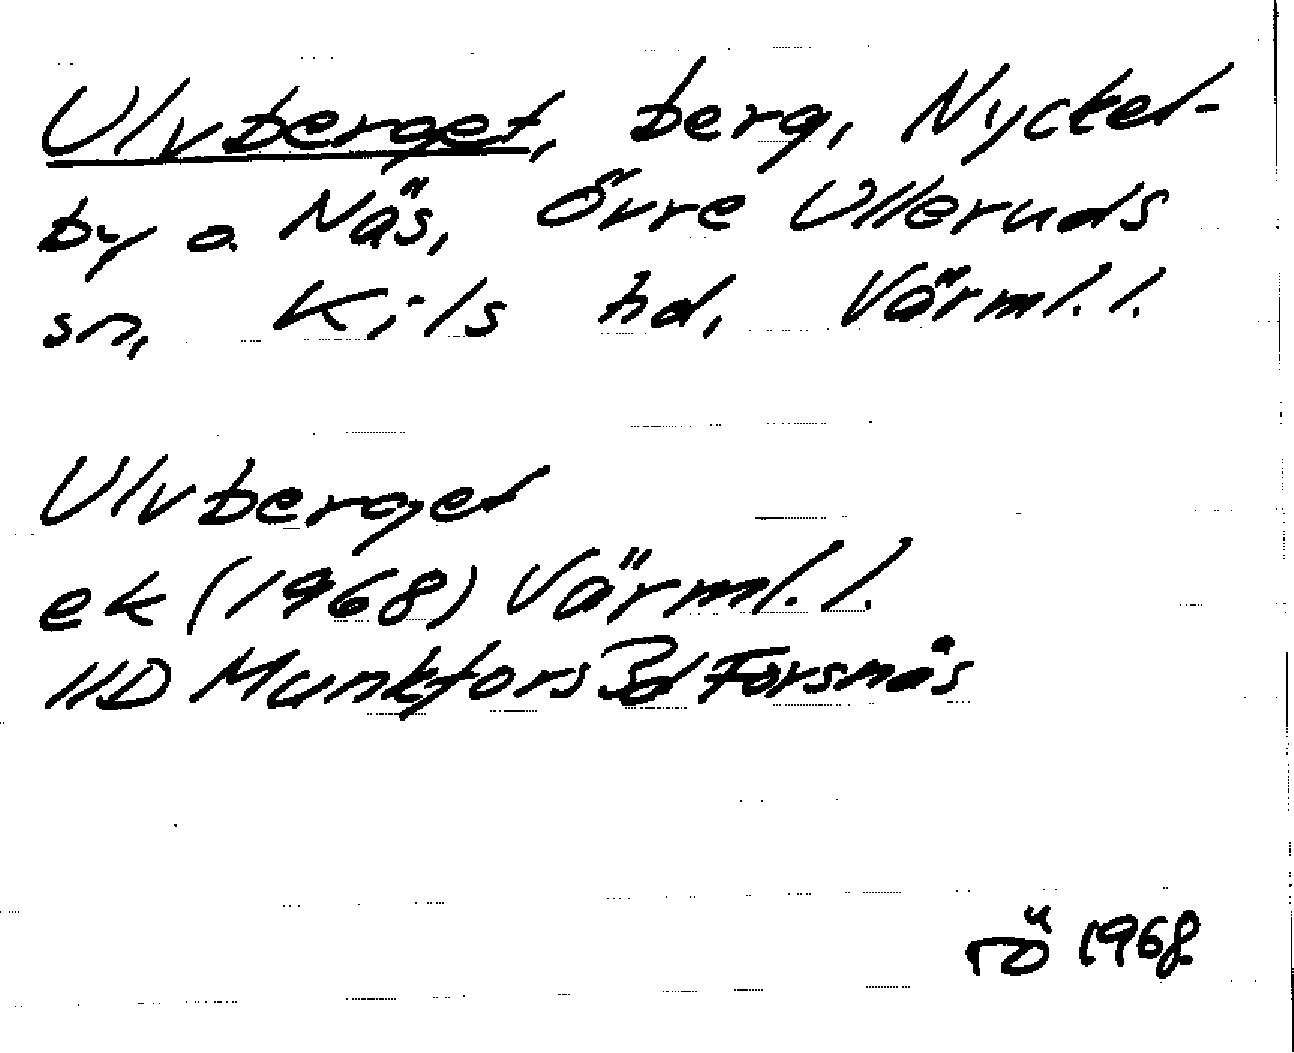 Ulvberget, berg, Nyckel-
by o. Näs, Övre Ulleruds
sn, Kils hd, Värml. l.
Ulvberget
ek (1968) Värml. l.
11D Munkfors 3d Forsnäs
rö 1968.